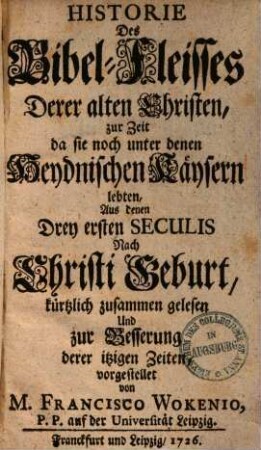 HISTORIE
Des
Bibel-Fleisses
Derer alten Christen,
zur Zeit
da sie noch unter denen
Heydnischen Käysern
lebten,
Aus denen
Drey ersten SECULIS
Nach
Christi Geburt,
kürtzlich zusammen gelesen
Und
zur Besserung
derer itzigen Zeiten,
vorgestellet
von
M. FRANCISCO WOKENIO,
P. P. auf der Universität Leipzig.
Franckfurt und Leipzig, 1726.
IN
AUGSBURG